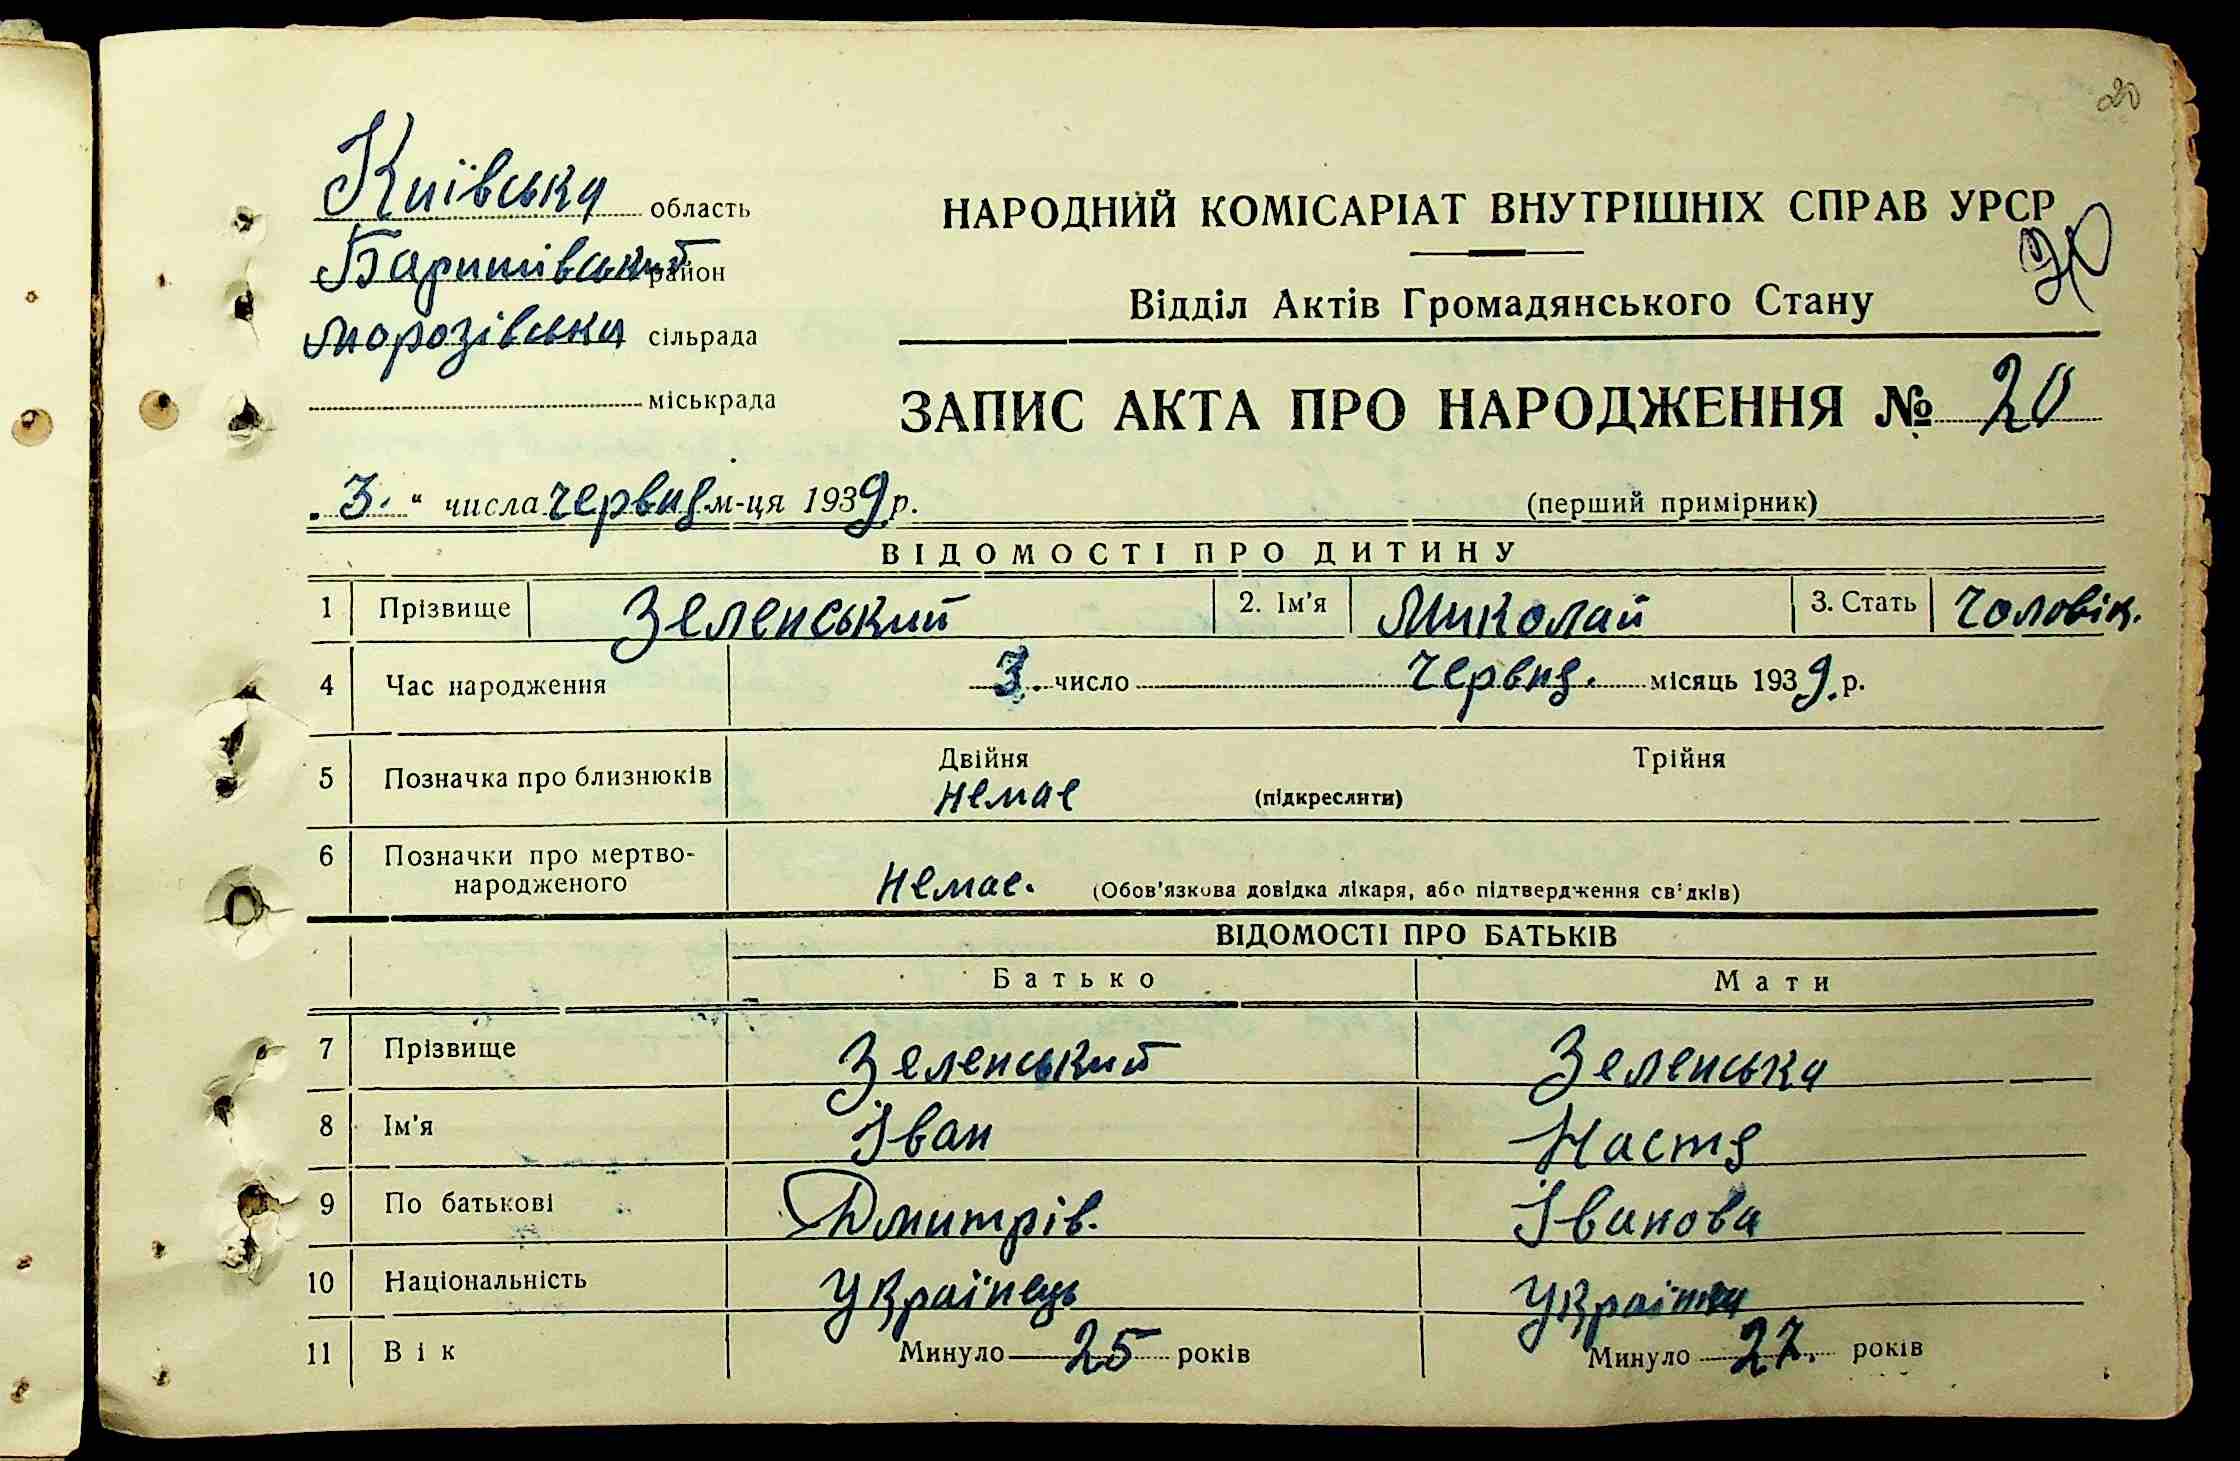 20
Київська область
НАРОДНИЙ КОМІСАРІАТ ВНУТРІШНІХ СПРАВ УРСР
Баришівський район
20
Відділ Актів Громадянського Стану
Морозівська сільрада
міськрада
ЗАПИС АКТА ПРО НАРОДЖЕННЯ № 20
„3.“ числа червня м-ця 1939 р.
(перший примірник)
ВІДОМОСТІ ПРО ДИТИНУ
1 Прізвище Зеленський 2. Ім'я Миколай 3. Стать чоловік.
4 Час народження 3. число червня. місяць 1939. р.
5 Позначка про близнюків Двійня Трійня
немає (підкреслити)
6 Позначки про мертво-
народженого немає. (Обов'язкова довідка лікаря, або підтвердження свідків)
ВІДОМОСТІ ПРО БАТЬКІВ
Батько Мати
7 Прізвище Зеленський Зеленська
8 Ім'я Іван Настя
9 По батькові Дмитрів. Іванова
10 Національність Українець Українка
11 Вік Минуло 25 років Минуло 27. років